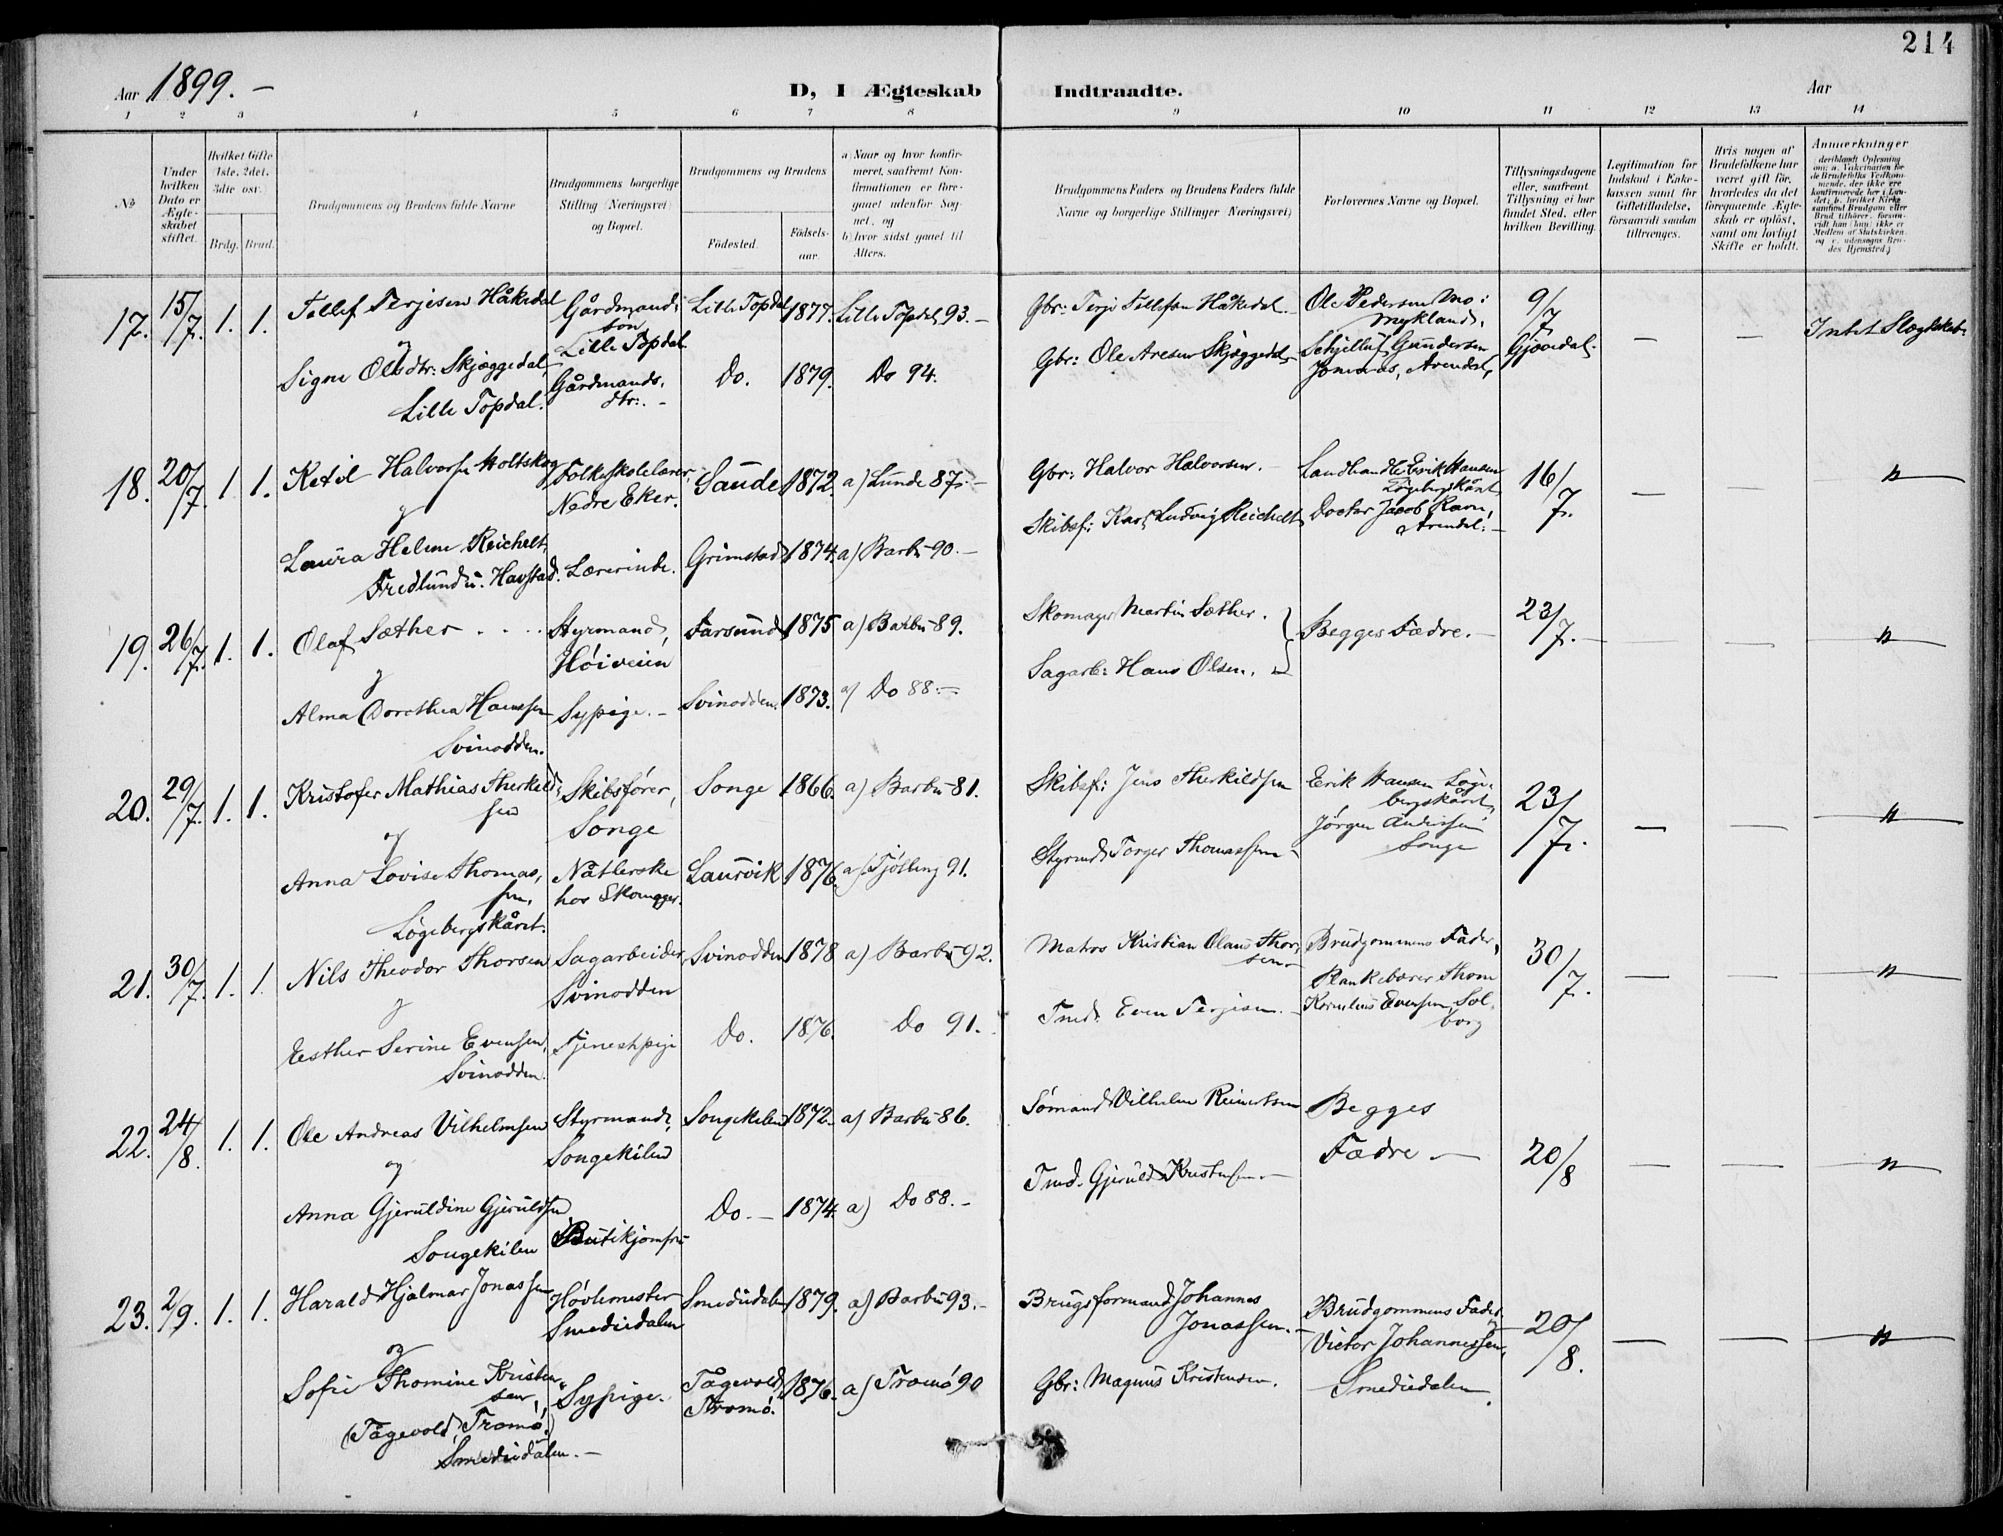 214
Aar 1899. –
D, I Ægteskab Indtraadte.
Aar
1 2 3 4 5 6 7 8 9 10 11 12 13 14
№
Under hvilken Dato er Ægteskabet stiftet.
Hvilket Gifte 1ste, 2det, 3die osv.
Brdg. Brud.
Brudgommens og Brudens fulde Navne
Brudgommens borgerlige Stilling (Næringsvei) og Bopæl.
Brudgommens og Brudens
Fødested.
Fødselsaar.
a) Naar og hvor konfirmeret, saafremt Konfirmationen er foregaaet udenfor Sognet, og
b) hvor sidst gaaet til Alters.
Brudgommens Faders og Brudens Faders fulde Navne og borgerlige Stillinger (Næringsvei)
Forlovernes Navne og Bopæl.
Tillysningsdagene eller, saafremt Tillysning ei har fundet Sted, efter hvilken Bevilling.
Legitimation for Indskud i Enkekassen samt for Giftetilladelse, forsaavidt saadan tiltrænges.
Hvis nogen af Brudefolkene har været gift før, hvorledes da det foregaaende Ægteskab er opløst, samt om lovligt Skifte er holdt.
Anmærkninger
17. 15/7. 1. 1. Tellef Terjesen Håkedal Gårdmands Lille Topdal 1877. Lille Topdal 93. – Gbr: Terje Tellefsen Håkedal. – Ole Pedersen Mo: 9/7 – – Intet Slægtskab.
søn Mykland.
og Lille Topdal Gjøvedal.
Signe Olsdtr: Skjæggedal, Gårdmands, Do. 1879. Do 94. Gbr: Ole Aresen Skjæggedal – Schjelluf Gundersen
Lille Topdal. dtr: – Jomaas, Arendal,
18. 20/7. 1 1. Ketil Halvorsen Holtskog Folkeskolelærer, Saude 1872. a) Lunde 87. – Gbr: Halvor Halvorsen. – Landhandler Erik Hansen 16/7. – – "
og Nedre Eker. Løgebergskåret
Laura Helene Reichelt, Lærerinde. Grimstad 1874. a) Barbu 90. – Skibsf: Karl Ludvig Reichelt Doctor Jacob Ravn,
Fredlund u. Havstad. Arendal. –
19. 26/7. 1. 1. Olaf Sæther . . . . Styrmand, Farsund 1875 a) Barbu 89. Skomager Martin Sæther. Begges Fædre. – 23/7. – – – "
og Høiveien
Alma Dorothea Hanssen Sypige. – Svinodden. 1873. a) Do 88. – Sagarb: Hans Olsen. –
Svinodden.
20. 29/7. 1. 1. Kristofer Mathias Therkild, Skibsfører, Songe 1866. a) Barbu 81. Skibsf: Jens Therkildsen Erik Hansen Løge, 23/7. – – "
sen Songe bergskåret,
og Jørgen Anderssen
Anna Lovise Thomas, Nåtlerske Laurvik 1876. a) Tjølling 91. Styrmd. Torger Thomassen – Songe
sen, hos Skomager.
Løgebergskåret.
21. 30/7. 1. 1. Nils Theodor Thorsen Sagarbeider, Svinodden 1878 a) Barbu 92. Matros Kristian Olaus Thor, Brudgommens Fader, 30/7. – – "
og Svinodden sen Plankebærer Thom
Esther Serine Evensen, Tjenestpige Do. 1876. Do 91. Tmd. Even Terjesen. – Kornelius Evensen, Sol,
Svinodden. borg
22. 24/8. 1. 1. Ole Andreas Vilhelmsen Styrmand, Songekilen 1872. a) Barbu 86. Sømand Vilhelm Reinertsen Begges 20/8 – – "
og Songekilen Fædre –
Anna Gjeruldine Gjeruldsen Butikjomfru Do. – 1874. a) Do 88. – Tmd. Gjeruld Kristensen. –
Songekilen
23. 2/9. 1. 1. Harald Hjalmar Jonassen Høvlemester Smediedalen 1879. a) Barbu 93. – Brugsformand Johannes Brudgommens Fader, 20/8. – – "
Smediedalen Jonassen. – Victor Johannessen,
og Smediedalen.
Sofie Thomine Kristen, Sypige. Tågevold, 1876. a) Tromø 90 Gbr: Magnus Kristensen.
sen, Tromø.
(Tågevold, Tromø)
Smediedalen. –